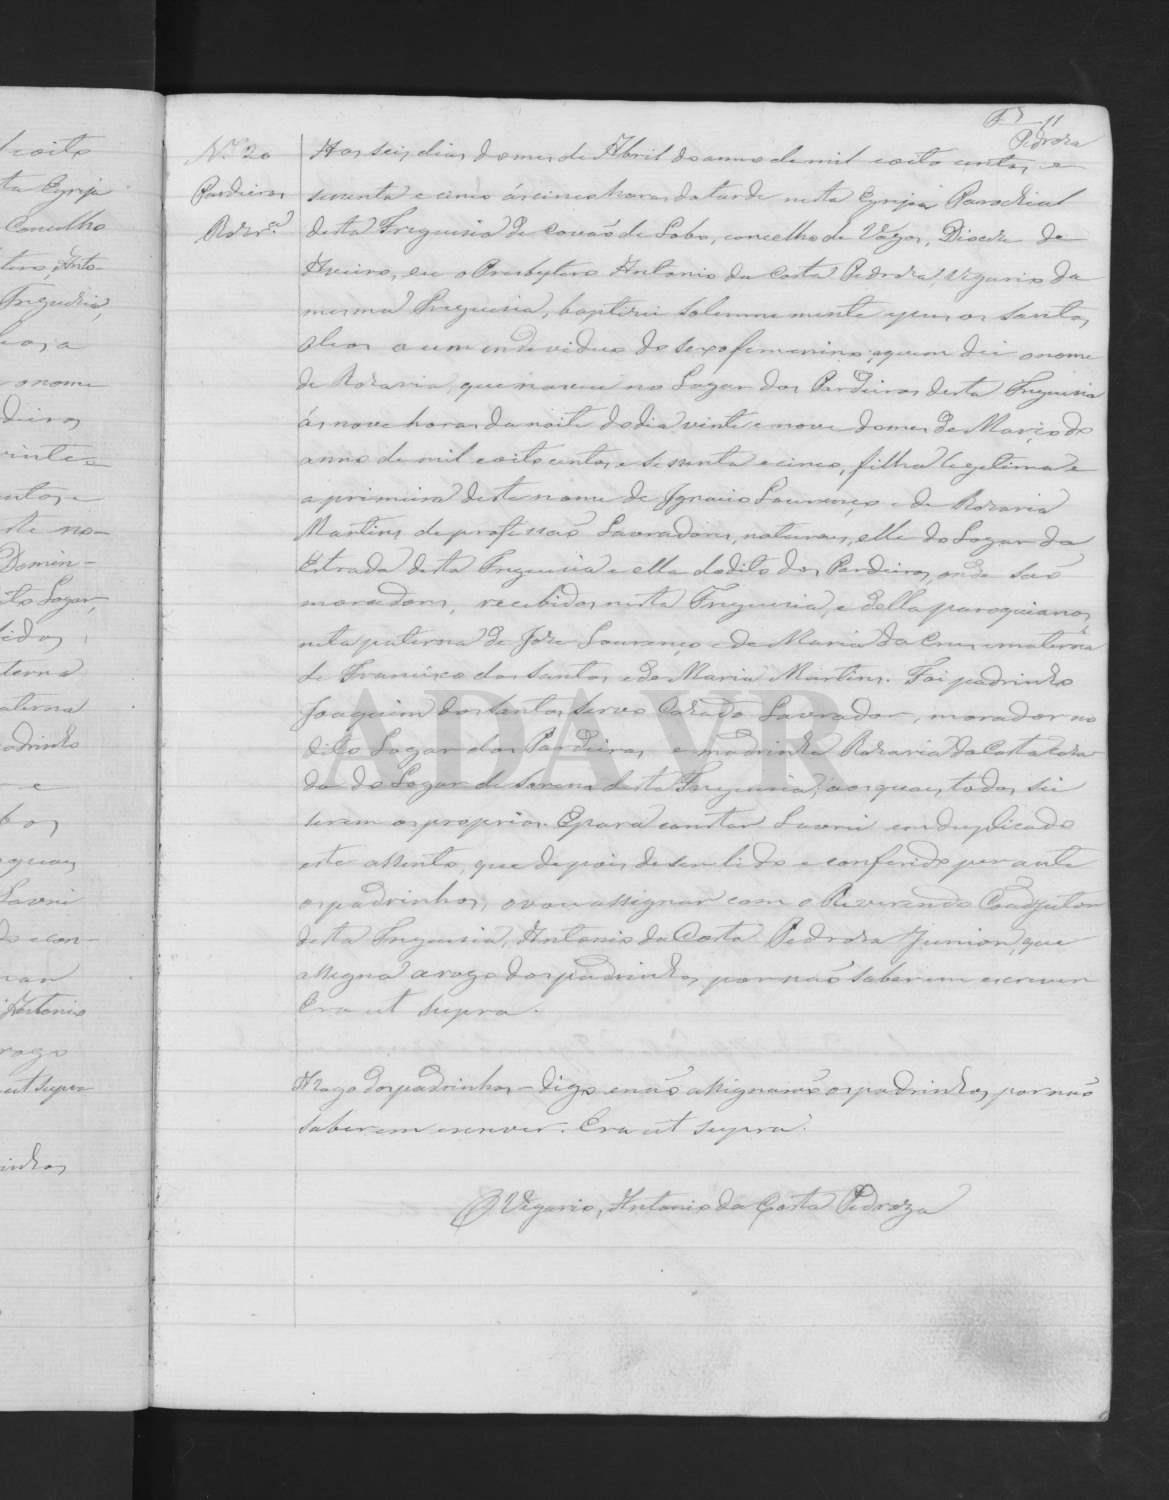 11
Pedroza
Nº 20
Pardieiros
Rozr.ª
Aos seis dias do mes de Abril do anno de mil e oito centos e
secenta e cinco ás cinco horas da tarde nesta Egreja Parochial
desta Freguesia de Covaõ de Lobo, concelho de Vagos, Diocese de
Aveiro, eu o Presbytero Antonio da Costa Pedroza, Vigario da
mesma Freguesia, baptizei solemnemente e puz os santos
oleos a um individuo do sexo femenino, a quem dei o nome
de Rozaria, que nasceu no Logar dos Pardieiros desta Freguesia
ás nove horas da noite do dia vinte e nove do mes de Março do
anno de mil e oito centos e sesenta e cinco, filha legitima e
a primeira deste nome de Ignacio Lourenço e de Rozaria
Martins de profissaõ Lavradores, naturaes, elle do Logar da
Estrada desta Freguesia e ella do dito dos Pardieiros, onde saõ
moradores, recebidos nesta Freguesia, e della paroquianos,
neta paterna de Joze Lourenço e de Maria da Cruz e materna
de Francisco dos Santos e de Maria Martins. Foi padrinho
Joaquim dos Santos Servo Cazado Lavrador, morador no
dito Logar dos Pardieiros e madrinha Rozaria da Costa caza
da do Logar de desta Freguesia, aos quaes todos sei
serem os proprios. E para constar Lavrei em duplicado
este assento, que depois de ser lido e conferido perante
os padrinhos, o vou assignar com o Reverendo Coadjutor
desta Freguesia, Antonio da Costa Pedroza Junior, que
assigna a rogo dos padrinhos, por naõ saberem escrever
Era ut supra.
A rogo dos padrinhos - digo, e naõ assignaraõ os padrinhos, por naõ
saberem escrever. Era ut supra.
O Vigario, Antonio da Costa Pedroza
ADAVR